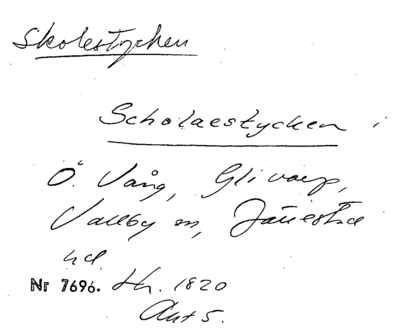 Skolestycken
Scholaestycken i
Ö. Vång, Glivarp,
Vallby sn, Järrestad
hd.
Nr 7696. Hr. 1820
Akt 5.